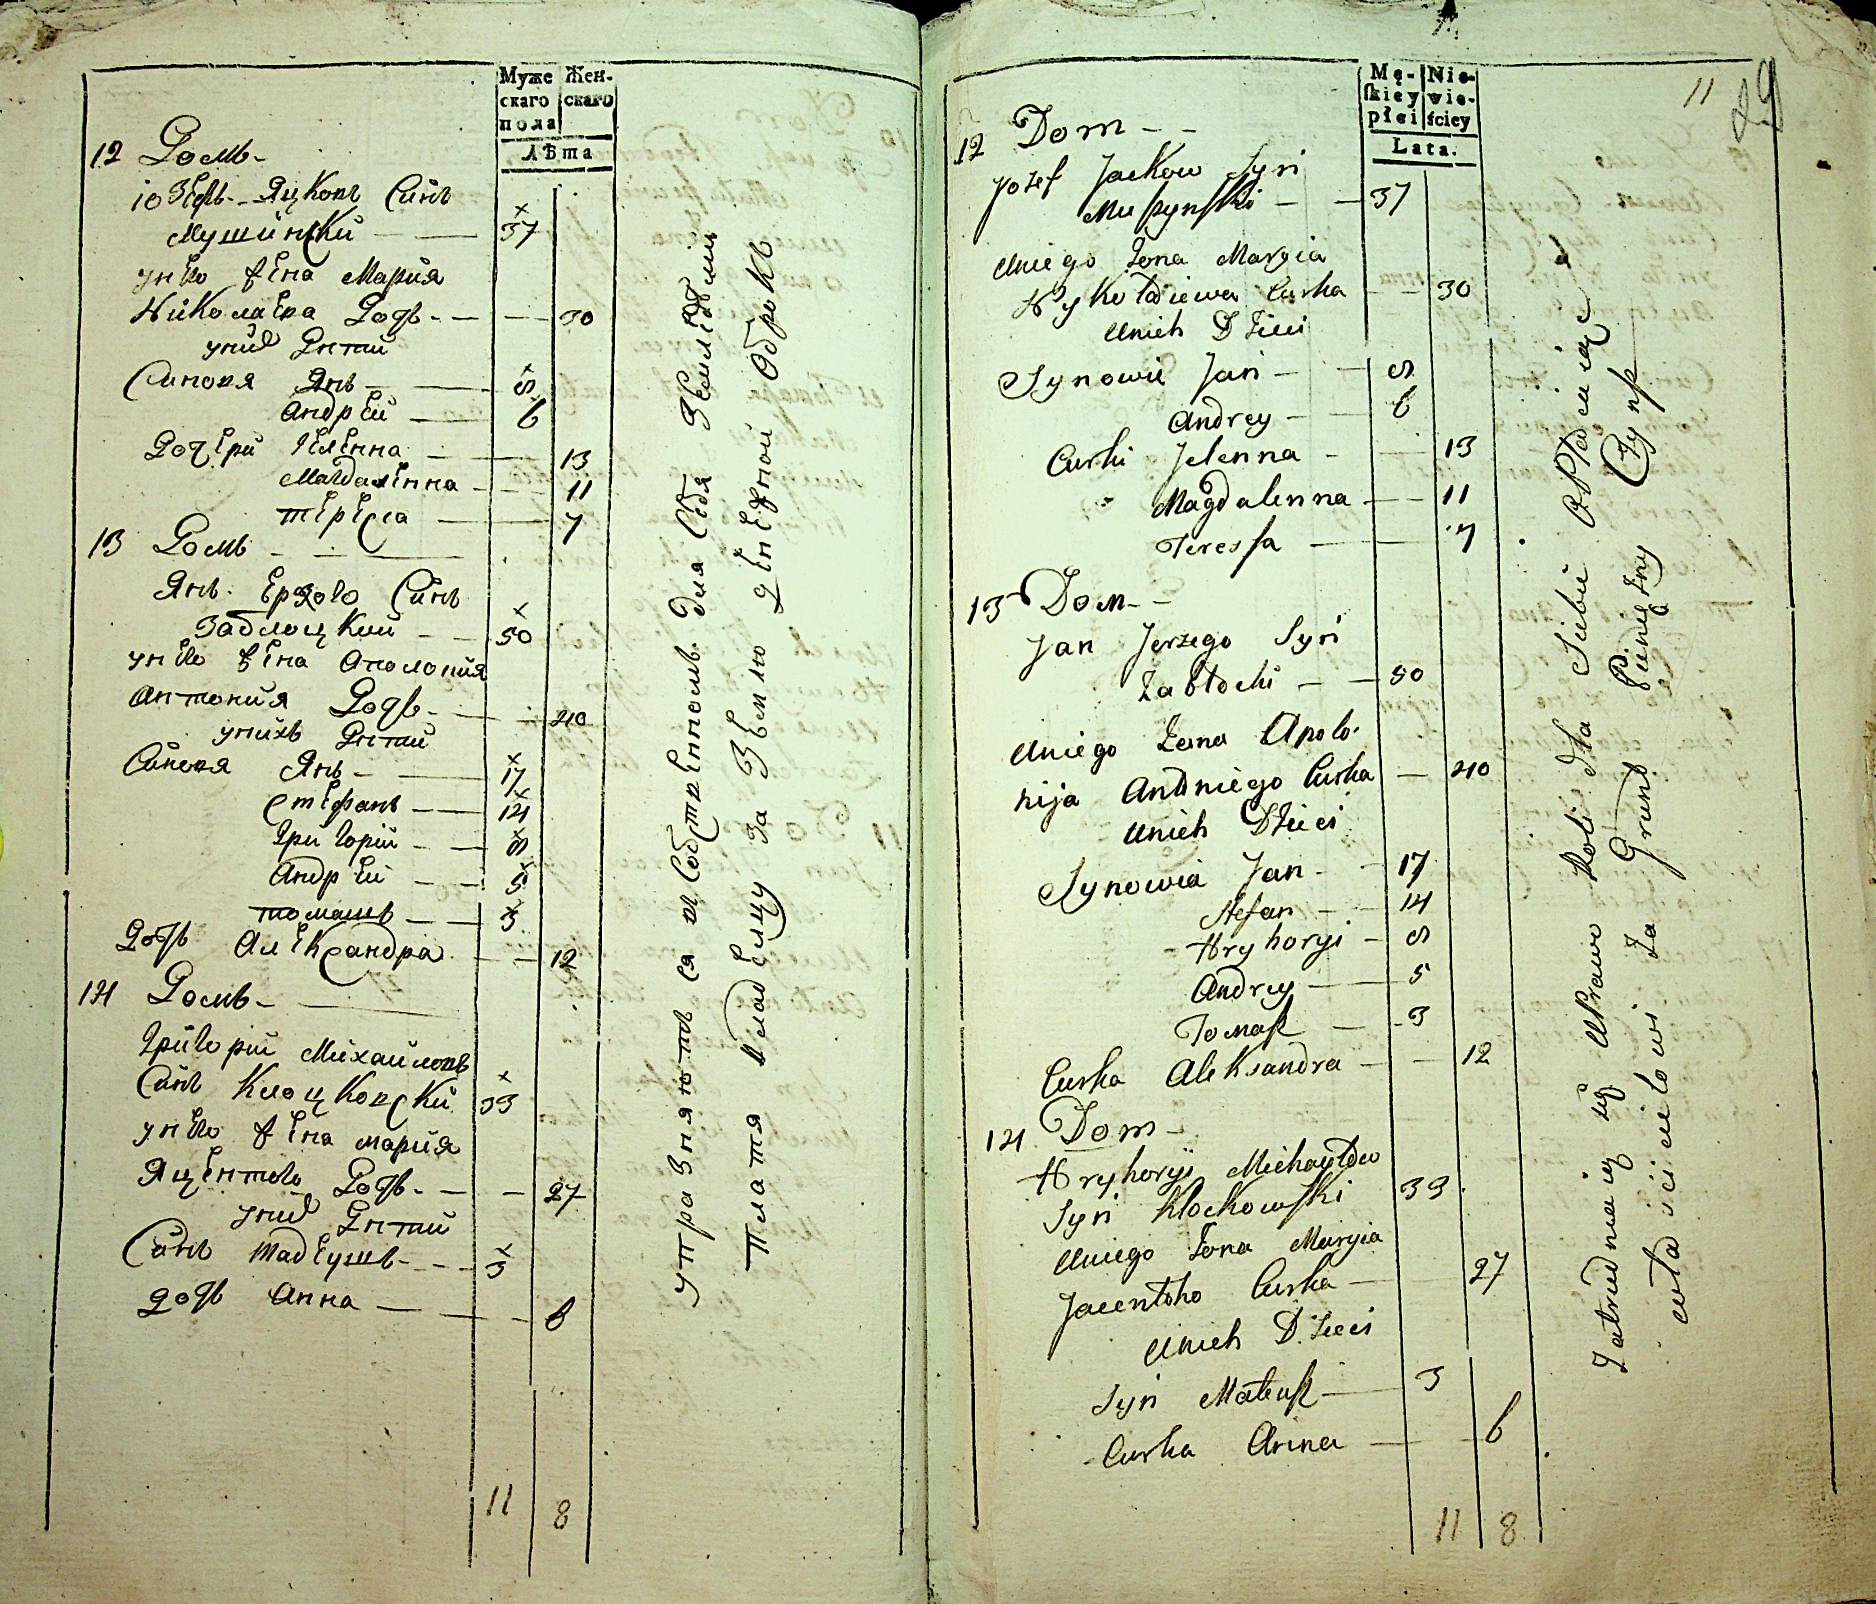 Муже Жен-
скаго скаго
пола
Лѣта
12 Домъ
Іозефъ Яцковъ Синъ
Мушинский 37
унего жена Мария
Николаева Дочь 30
унихъ Дѣти
Синовя Янъ 8
Андрей 6
Дочери Геленна 13
Магдаленна 11
Тереса 7
13 Домъ
Янъ Ержого Синъ
Заблоцкий 50
унего жена Аполония
Антония Дочь 40
унихъ Дѣти
Синовя Янъ 17
Стефанъ 14
Григорий 8
Андрей 5
Томашъ 3
Дочь Александра 12
14 Домъ
Григорий Михайловъ
Синъ Клоцковский 33
унего жена Мария
Яцентого Дочь 27
унихъ Дѣти
Синъ Тадеушъ 3
Дочь Анна 6
11 8
упразняются въ Собственномъ для Себя Земледѣлии
Платя Владелцу за Землю денежной Оброкъ
11
29
Mę- Nie-
skiey wie-
płci ściey
Lata.
12 Dom
Jozef Jackow Syn
Muszynski 37
Uniego Żona Maryia
Nykołaiewa Curka 30
Unich Dzieci
Synowie Jan 8
Andrey 6
Curki Jelenna 13
Magdalenna 11
Teressa 7
13 Dom
Jan Jerzego Syn
Zabłocki 50
Uniego Żona Apolo-
nija Antoniego Curka 40
Unich Dzieci
Synowia Jan 17
Stefan 14
Hryhoryi 8
Andrey 5
Tomasz 3
Curka Aleksandra 12
14 Dom
Hryhoryi Michayłow
Syn Kłockowski 33
Uniego Żona Maryia
Jacentoho Curka 27
Unich Dzieci
Syn Mateusz 3
Curka Anna 6
11 8
Zatrudniaią się Uprawą Roli dla Siebie Opłacaiąc
właścicielowi Za Grunt Pieniężny Czynsz